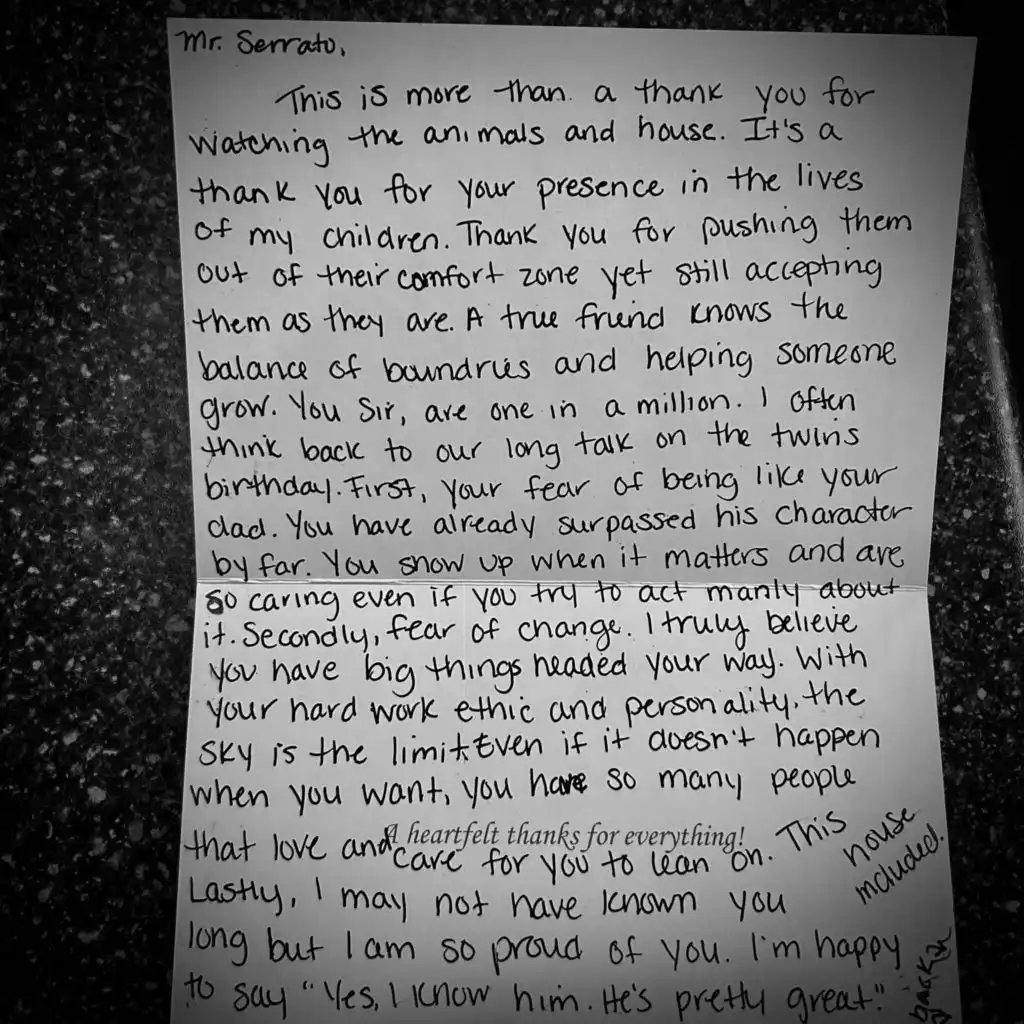 Mr. Serrato,
This is more than a thank you for
watching the animals and house. It's a
thank you for your presence in the lives
of my children. Thank you for pushing them
out of their comfort zone yet still accepting
them as they are. A true friend knows the
balance of boundries and helping someone
grow. You Sir, are one in a million. I often
think back to our long talk on the twins
birthday. First, your fear of being like your
dad. You have already surpassed his character
by far. You show up when it matters and are
so caring even if you try to act manly about
it. Secondly, fear of change. I truly believe
you have big things headed your way. With
your hard work ethic and personality, the
sky is the limit. Even if it doesn't happen
when you want, you have so many people
A heartfelt thanks for everything!
that love and care for you to lean on. This
house
included.
Lastly, I may not have known you
long but I am so proud of you. I'm happy
to say "Yes, I know him. He's pretty great."
back